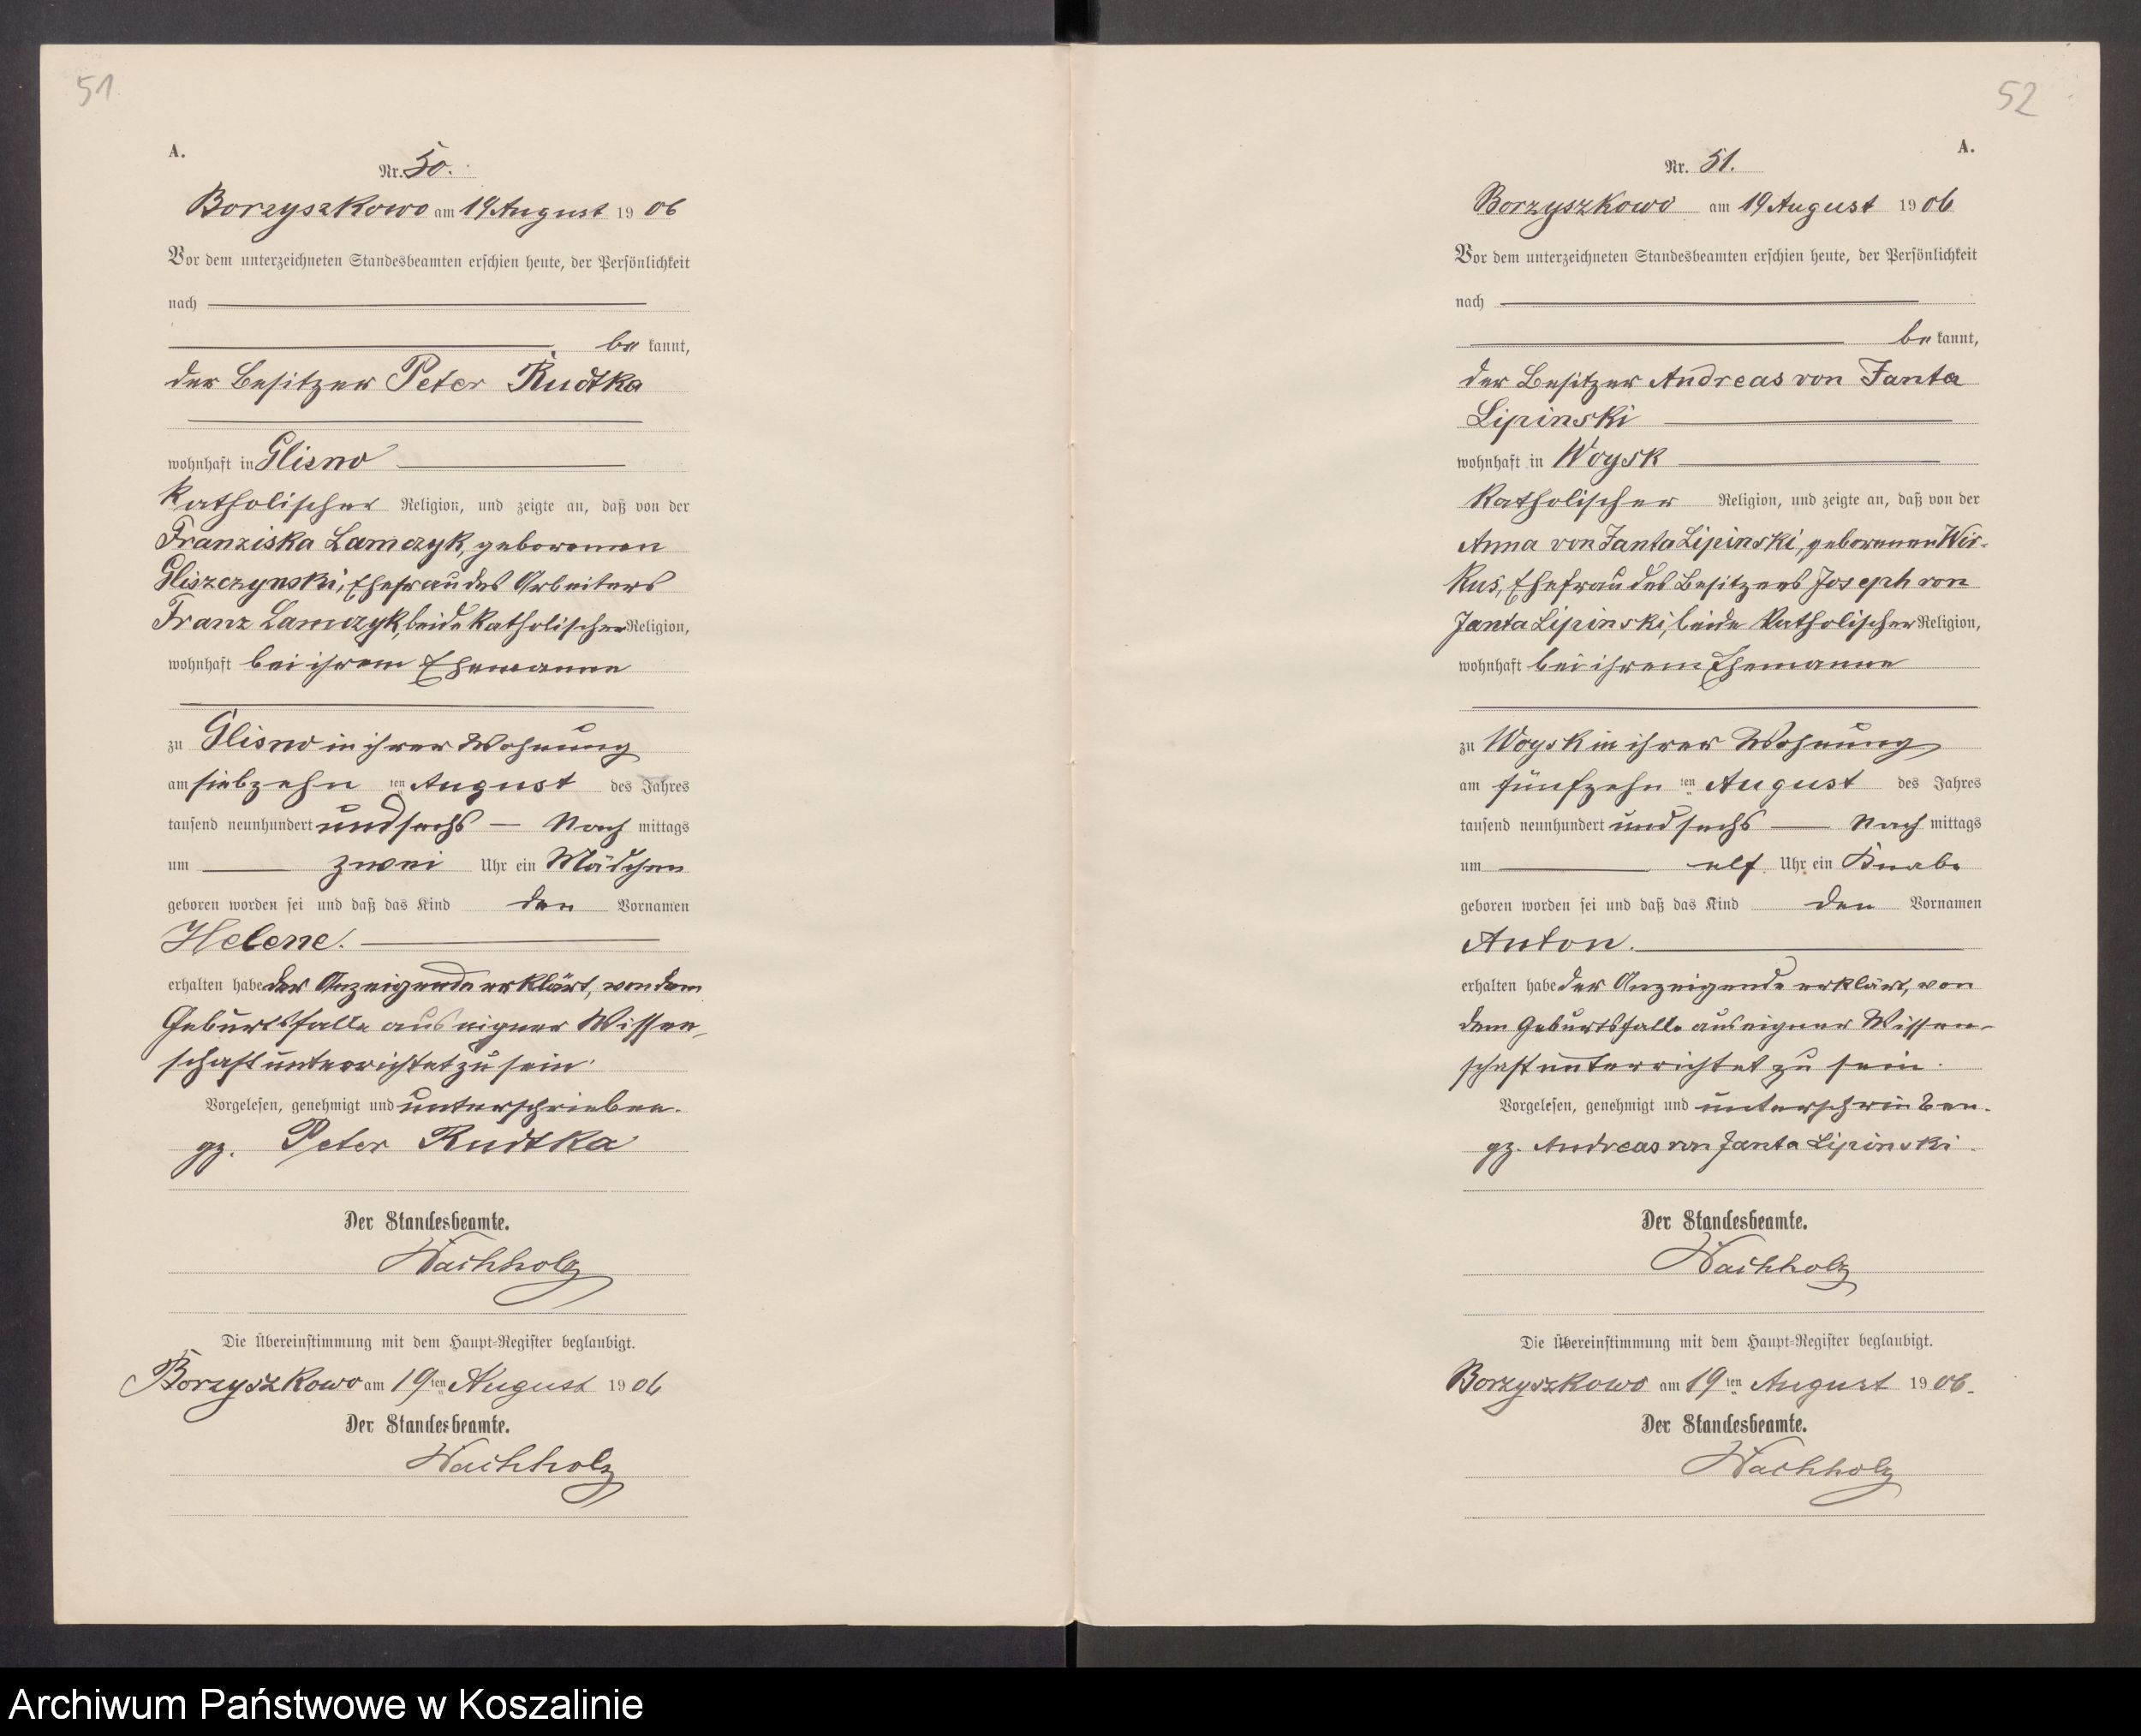 51
A.
Nr. 50.
Borzyszkowo am 19 August 1906
Vor dem unterzeichneten Standesbeamten erschien heute, der Persönlichkeit
nach
be kannt,
der Besitzer Peter Rudtka
wohnhaft in Glisno
katholischer Religion, und zeigte an, daß von der
Franziska Lamczyk, geborenen
Gliszczynski, Ehefrau des Arbeiters
Franz Lamczyk, beide katholischer Religion,
wohnhaft bei ihrem Ehemanne
zu Glisno in ihrer Wohnung
am siebzehn ten August des Jahres
tausend neunhundert und sechs — Nach mittags
um zwei Uhr ein Mädchen
geboren worden sei und daß das Kind den Vornamen
Helene.
erhalten habe der Anzeigende erklärt, von dem
Geburtsfalle aus eigner Wissen-
schaft unterrichtet zu sein.
Vorgelesen, genehmigt und unterschrieben.
gz. Peter Rudtka
Der Standesbeamte.
Wachholz
Die Übereinstimmung mit dem Haupt-Register beglaubigt.
Borzyszkowo am 19 ten August 1906
Der Standesbeamte.
Wachholz
52
A.
Nr. 51.
Borzyszkowo am 19 August 1906
Vor dem unterzeichneten Standesbeamten erschien heute, der Persönlichkeit
nach
be kannt,
der Besitzer Andreas von Janta
Lipinski
wohnhaft in Woysk
katholischer Religion, und zeigte an, daß von der
Anna von Janta Lipinski, geborenen Wir-
kus, Ehefrau des Besitzers Joseph von
Janta Lipinski, beide katholischer Religion,
wohnhaft bei ihrem Ehemanne
zu Woysk in ihrer Wohnung
am fünfzehn ten August des Jahres
tausend neunhundert und sechs — Nach mittags
um elf Uhr ein Knabe
geboren worden sei und daß das Kind den Vornamen
Anton.
erhalten habe der Anzeigende erklärt, von
dem Geburtsfalle aus eigner Wissen-
schaft unterrichtet zu sein.
Vorgelesen, genehmigt und unterschrieben.
gz. Andreas von Janta Lipinski.
Der Standesbeamte.
Wachholz
Die Übereinstimmung mit dem Haupt-Register beglaubigt.
Borzyszkowo am 19 ten August 1906.
Der Standesbeamte.
Wachholz
Archiwum Państwowe w Koszalinie